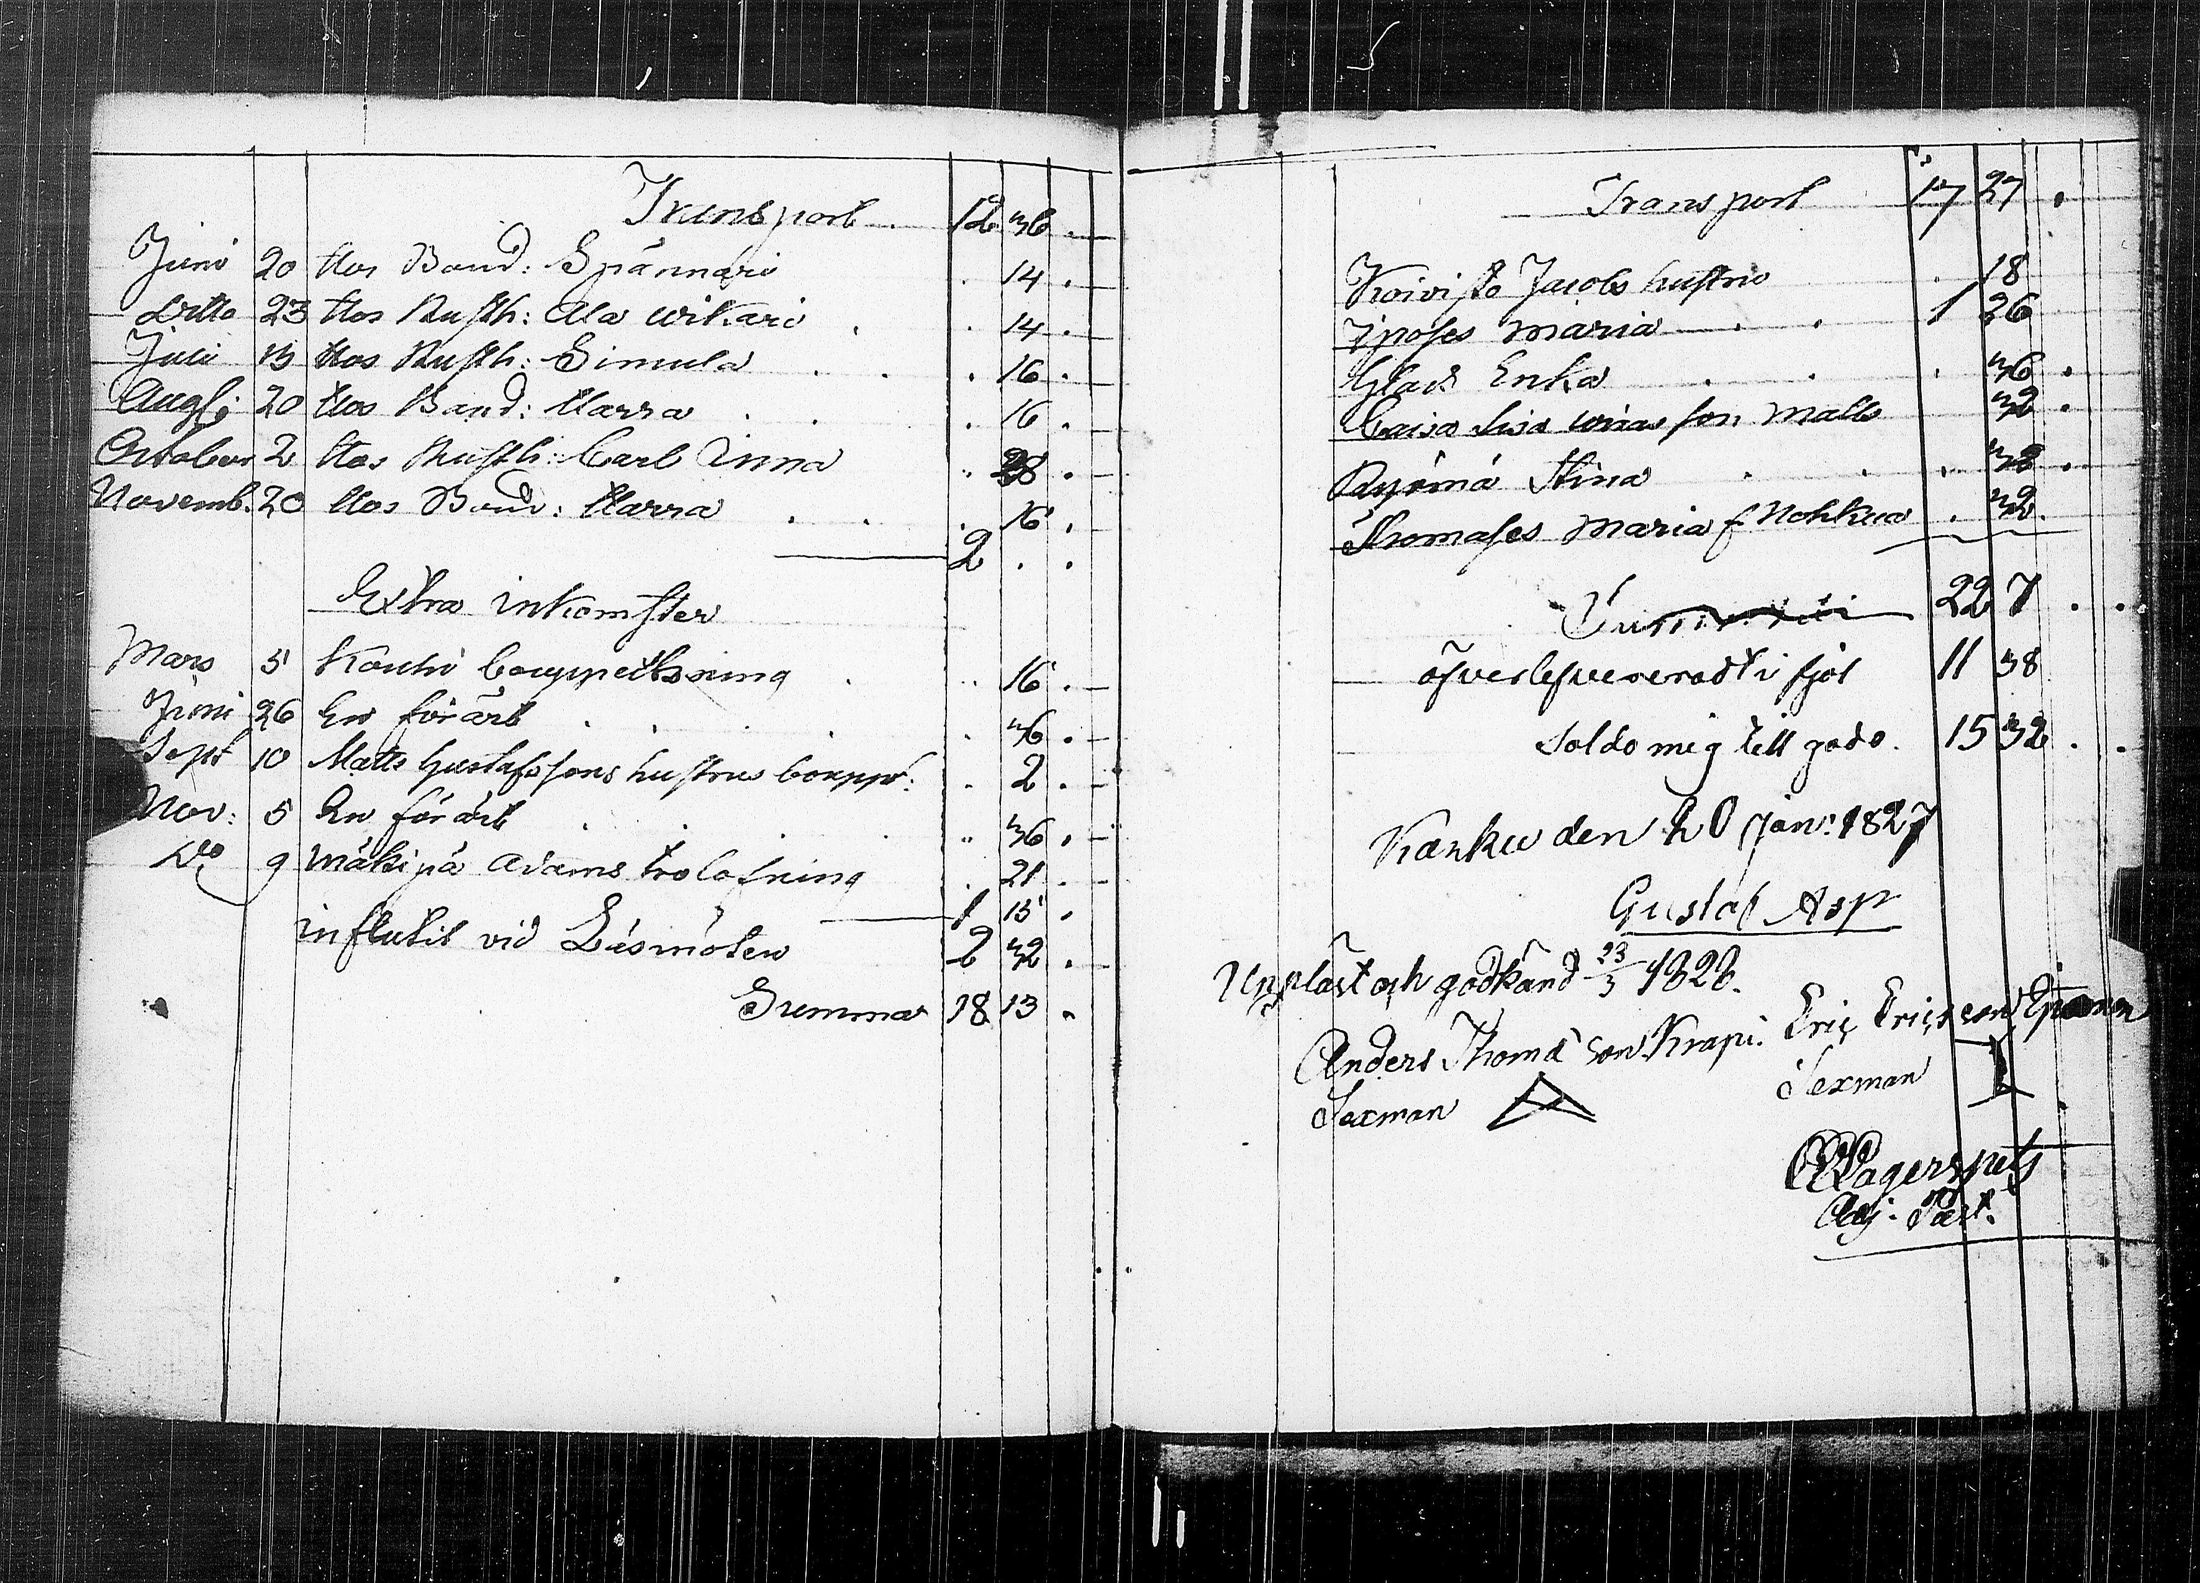 Transport 12 36 .
Juni 20 Hos Bond: Spännari . 14 .
Ditto 23 Hos Rusth: Ala wikari . 14 .
Juli 13 Hos Rusth: Simula . 16 .
Augs: 20 Hos Bond: Harra . 16 .
October 2 Hos Rusth: Carl Inna . 28 .
Novemb. 20 Hos Bond: Harra . 16 .
2 . .
Extra inkomster
Mars 5 Kouhi bouppteckning . 16 .
Juni 26 En förärt . 36 .
Sept 10 Matts Gustafssons hustrus bouppt: . 2 .
Nov: 5 En förärt . 36 .
Do 9 Mäkipä Adams trolofning . 21 .
1 15 .
influtit vid Läsmöten 2 32 .
Summa 18 13 .
Transport 17 27 .
Koivisto Jacobs hustru . 18
Iposes Maria 1 26
Glad Enka . 36 .
Caisa Lisa son Matts 32 .
Pyörnä Stina . 32 .
Thomases Maria f. Nohkua . 32 .
22 7 . .
öfverlefvereradt i fjol 11 38
Saldo mig till godo. 15 32 . .
Kanku den 20 Jan: 1827
Gustaf Asp
Uppläst och godkänd 23/3 1828.
Anders Thomasson Krapi. Eric Ericsson
Sexman Sexman
Lagerspetz
Adj. Past.